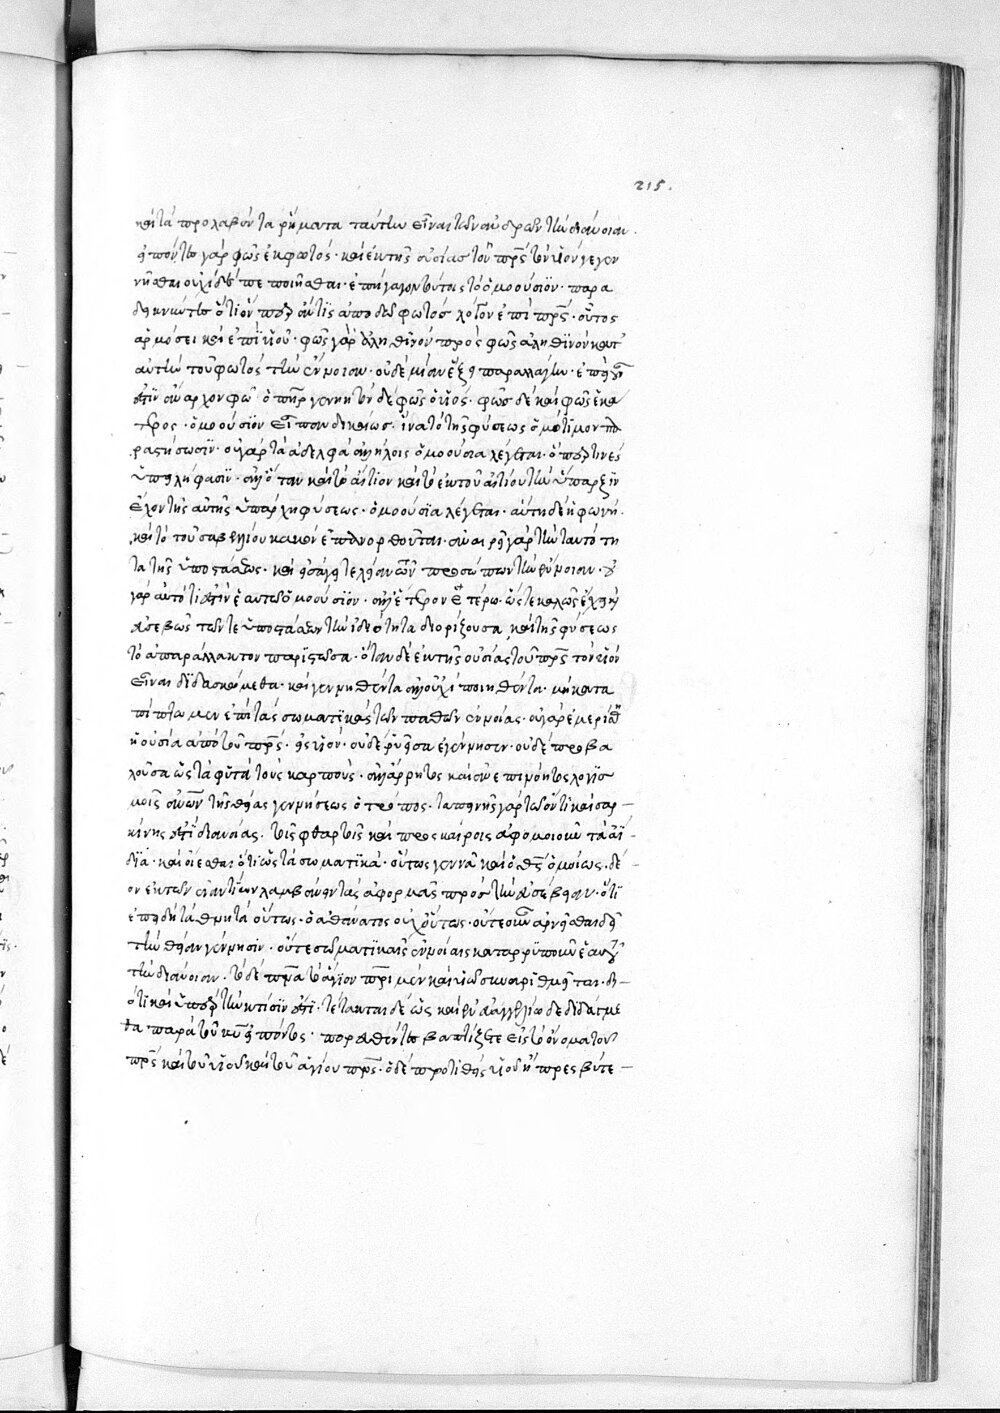 215.
καὶ τὰ προλαβόντα ῥήματα ταύτην εἶναι τῶν ἀνδρῶν τὴν διάνοιαν.
εἰπόντες γὰρ φῶς ἐκ φωτός· καὶ ἐκ τῆς οὐσίας τοῦ πρς τὸν υἱὸν γεγεν
νῆσθαι οὐχὶ δὲ πεποιῆσθαι· ἐπήγαγον τούτοις τὸ ὁμοούσιον· παρα
δεικνύντες ὅτι ὃν περ ἄν τις ἀποδῷ φωτὸς λόγον ἐπὶ πρς· οὗτος
ἁρμόσει καὶ ἐπὶ υἱοῦ· φῶς γὰρ ἀληθινὸν πρὸς φῶς ἀληθινὸν κατ
αὐτὴν τοῦ φωτὸς τὴν ἔννοιαν· οὐδεμίαν ἕξει παραλλαγήν· ἐπεὶ οὖν
ἐστὶν ἄναρχον φῶς ὁ πηρ γεννητὸν δὲ φῶς ὁ υἱός· φῶς δὲ καὶ φῶς ἑκά
τερος· ὁμοούσιον εἶπον δικαίως· ἵνα τὸ τῆς φύσεως ὁμότιμον πα
ραστήσωσιν· οὐ γὰρ τὰ ἀδελφὰ ἀλλήλοις ὁμοούσια λέγεται· ὅπερ τινὲς
ὑπειλήφασιν· ἀλλ' ὅταν καὶ τὸ αἴτιον καὶ τὸ ἐκ τοῦ αἰτίου τὴν ὕπαρξιν
ἔχον τῆς αὐτῆς ὑπάρχῃ φύσεως· ὁμοούσια λέγεται· αὕτη δὲ ἡ φωνὴ
καὶ τὸ τοῦ σαβελλίου κακὸν ἐπανορθοῦται· ἀναιρεῖ γὰρ τὴν ταυτότη
τα τῆς ὑποστάσεως· καὶ εἰσάγει τελείαν τῶν προσώπων τὴν ἔννοιαν· οὐ
γὰρ αὐτό τι ἐστὶν ἑαυτῷ ὁμοούσιον· ἀλλ' ἕτερον ἑτέρῳ· ὥστε καλῶς ἔχει καὶ
εὐσεβῶς τῶν τε ὑποστάσεων τὴν ἰδιότητα διορίζουσα, καὶ τῆς φύσεως
τὸ ἀπαράλλακτον παριστῶσα· ὅταν δὲ ἐκ τῆς οὐσίας τοῦ πρς τὸν υἱὸν
εἶναι διδασκώμεθα· καὶ γεννηθέντα ἀλλ' οὐχὶ ποιηθέντα· μὴ κατα
πίπτωμεν ἐπὶ τὰς σωματικὰς τῶν παθῶν ἐννοίας· οὐ γὰρ ἐμερίσθη
ἡ οὐσία ἀπὸ τοῦ πρς· εἰς υἱόν· οὐδὲ ῥυεῖσα ἐγέννησεν· οὐδὲ προβα
λοῦσα ὡς τὰ φυτὰ τοὺς καρπούς· ἀλλ' ἄρρητος καὶ ἀνεπινόητος λογισ
μοῖς ἀνων τῆς θείας γεννήσεως ὁ τρόπος· ταπεινῆς γὰρ τῷ ὄντι καὶ σαρ –
κίνης ἐστὶ διανοίας· τοῖς φθαρτοῖς καὶ προσκαίροις ἀφομοιοῦν τὰ ἀΐ –
δια· καὶ οἴεσθαι ὅτι ὡς τὰ σωματικά· οὕτως γεννᾷ καὶ ὁ θς ὁμοίως· δέ –
ον ἐκ τῶν ἐναντίων λαμβάνειν τὰς ἀφορμὰς πρὸς τὴν εὐσέβειαν· ὅτι
ἐπειδὴ τὰ θνητὰ οὕτως· ὁ ἀθάνατος οὐχ οὕτως· οὔτε οὖν ἀρνεῖσθαι δεῖ
τὴν θείαν γέννησιν· οὔτε σωματικαῖς ἐννοίαις καταρρυποῦν ἑαυτοῦ
τὴν διάνοιαν· τὸ δὲ πνα τὸ ἅγιον πρι μὲν καὶ υἱῷ συναριθμεῖται· δι –
ότι καὶ ὑπὲρ τὴν κτίσιν ἐστί· τέτακται δὲ ὡς καὶ ἐν εὐαγγελίῳ δεδιδάγμε
θα παρὰ τοῦ κυ εἰπόντος· πορευθέντες βαπτίζετε εἰς τὸ ὄνομα τοῦ
πρς καὶ τοῦ υἱοῦ καὶ τοῦ ἁγίου πνς· ὁ δὲ προτιθεὶς υἱοῦ ἢ πρεσβύτε –